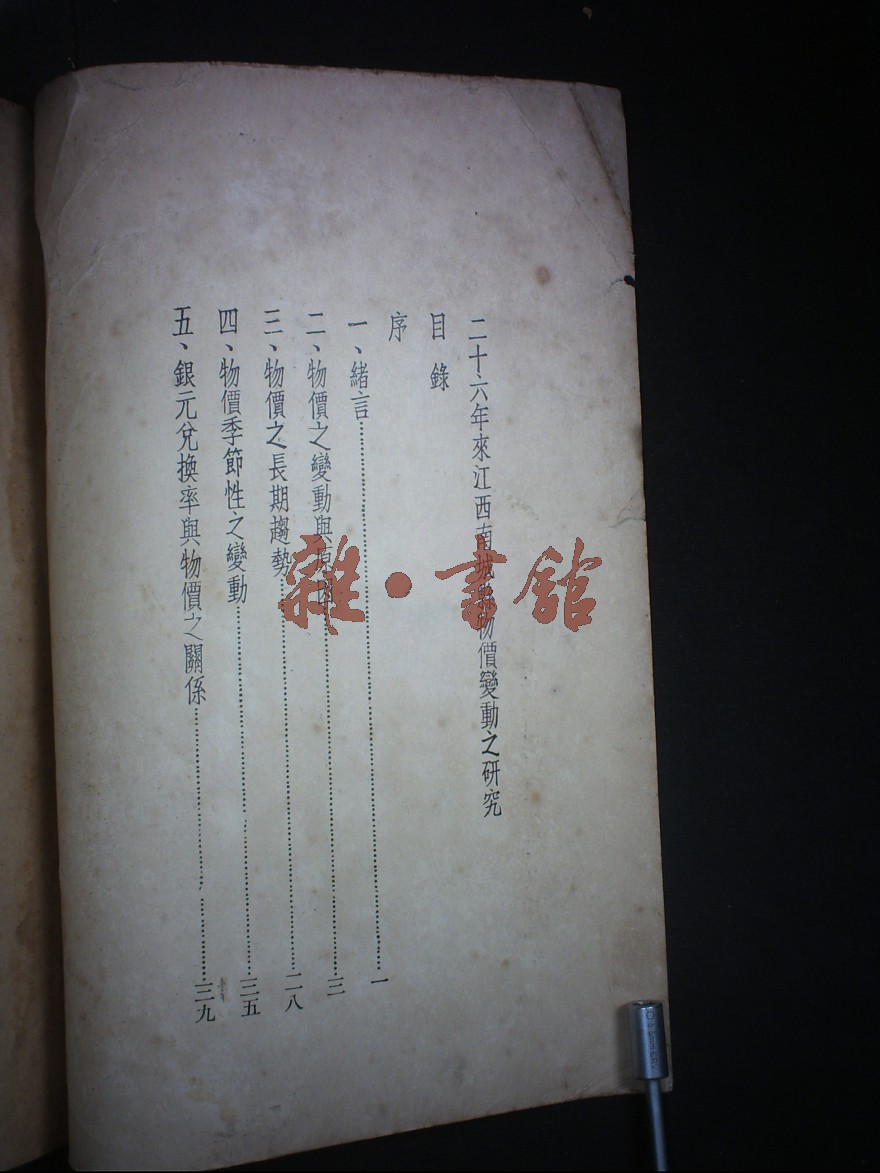 二十六年來江西南城縣物價變動之研究
目錄
序
一、緒言 一
二、物價之變動與原因 三
三、物價之長期趨勢 二八
四、物價季節性之變動 三五
五、銀元兌換率與物價之關係 三九
雜·書館